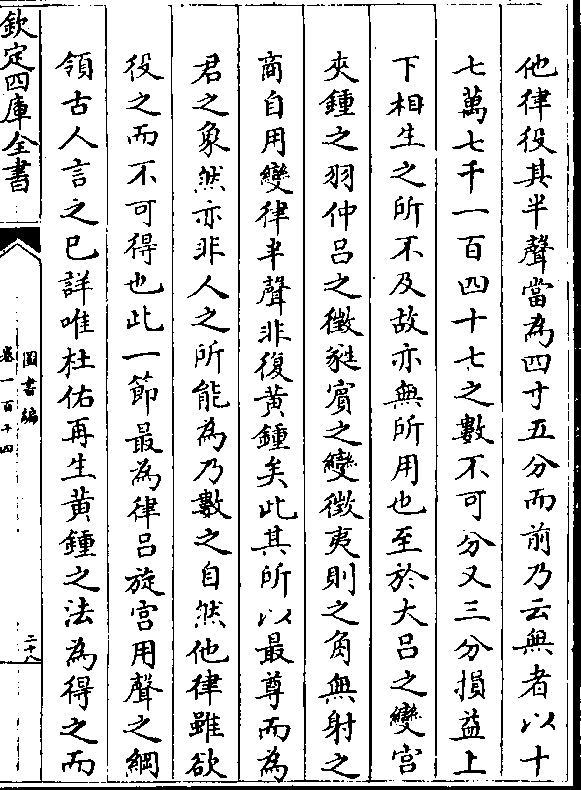 他律役其半聲當為四寸五分而前乃云無者以十
七萬七千一百四十七之數不可分又三分損益上
下相生之所不及故亦無所用也至於大呂之變宮
夾鍾之羽仲呂之徵蕤賓之變徵夷則之角無射之
商自用變律半聲非復黃鍾矣此其所以最尊而為
君之象然亦非人之所能為乃數之自然他律雖欲
役之而不可得也此一節最為律呂旋宮用聲之綱
領古人言之已詳唯杜佑再生黃鍾之法為得之而
欽定四庫全書
圖書編
卷一百十四
二十八